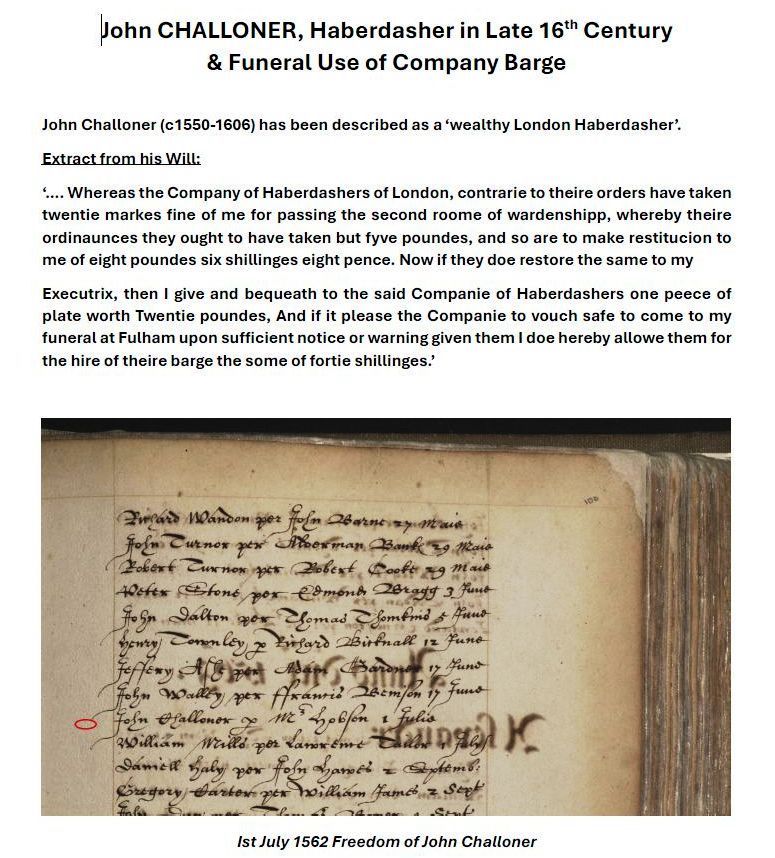 John CHALLONER, Haberdasher in Late 16th Century
& Funeral Use of Company Barge
John Challoner (c1550-1606) has been described as a ‘wealthy London Haberdasher’.
Extract from his Will:
‘.... Whereas the Company of Haberdashers of London, contrarie to theire orders have taken
twentie markes fine of me for passing the second roome of wardenshipp, whereby theire
ordinaunces they ought to have taken but fyve poundes, and so are to make restitucion to
me of eight poundes six shillinges eight pence. Now if they doe restore the same to my
Executrix, then I give and bequeath to the said Companie of Haberdashers one peece of
plate worth Twentie poundes, And if it please the Companie to vouch safe to come to my
funeral at Fulham upon sufficient notice or warning given them I doe hereby allowe them for
the hire of theire barge the some of fortie shillinges.’
100
Richard Wandon per John Barne 27 Maie
John Turnor per Alderman Banks 29 Maie
Robert Turnor per Robert Cooke 29 Maie
Peter Stone per Edmond Bragg 3 June
John Dalton per Thomas Thomkins 5 June
Henry Townley p Richard Bicknall 12 June
Jeffery per Adam Gardner 17 June
John Walley per ffrancis Bemson 17 June
John Challoner p Mr Hobson 1 Julie
William Mills per Lawrence Tailor 1 July
Daniell Haly per John Hawes 2 Septemb:
Gregory Carter per William James 2 Sept
John per Sept
Ist July 1562 Freedom of John Challoner